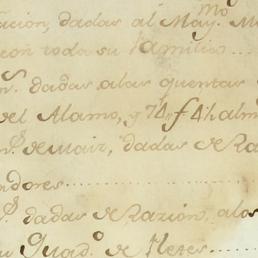 racion, dadas al May.mo M
con toda su familia
n.s dadas alas quentas
el Alamo, y 74 f 4½ alm
n.s de maiz, dadas de Ra
adores
s dadas de Razion, alos
u Quad.o de Yeres